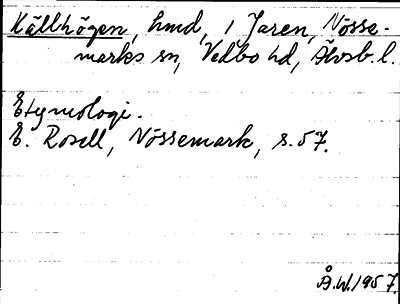 Källhögen, hmd, i Jaren, Nösse-
marks sn, Vedbo hd, Älvsb. l.
Etymologi.
E. Rosell, Nössemark, s. 57.
Å.W. 1957.